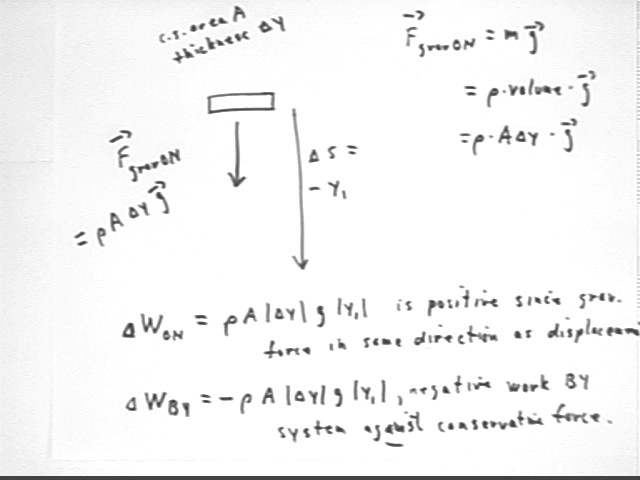 c.s. area A
thickness ΔY
F⃗gravON = m g⃗
= ρ·volume·g⃗
= ρ·AΔy·g⃗
F⃗gravON
= ρ A ΔY g⃗
Δs =
- Y₁
ΔW_ON = ρ A |ΔY| g |Y₁| is positive since grav.
force in same direction as displacemen
ΔW_BY = -ρ A |ΔY| g |Y₁|, negative work BY
system against conservative force.